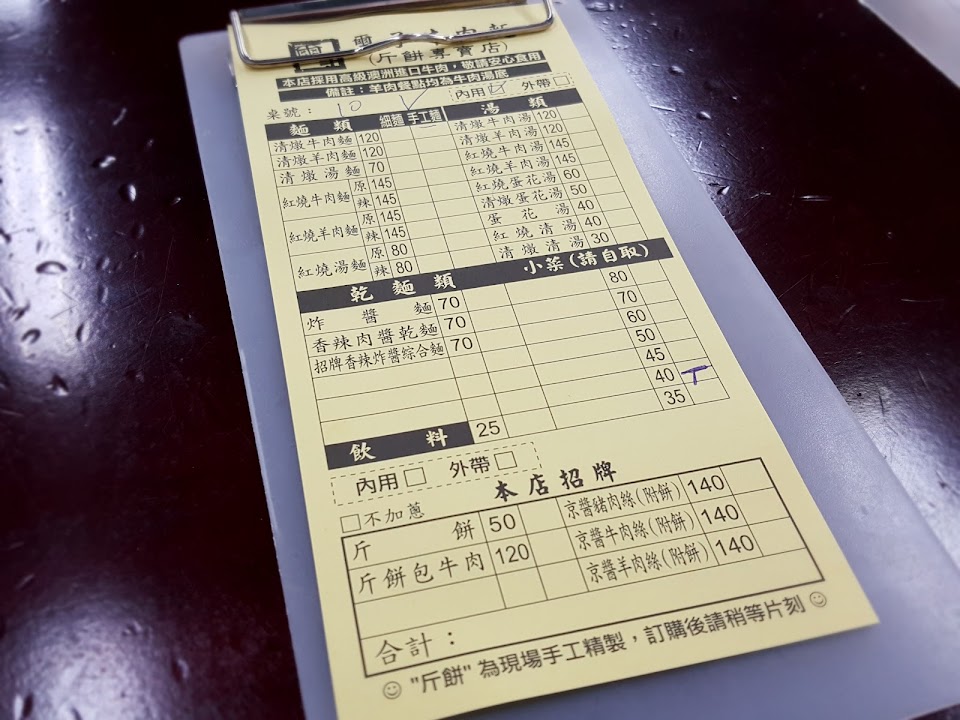 (斤餅專賣店)
本店採用高級澳洲進口牛肉，敬請安心食用
備註：羊肉餐點均為牛肉湯底
桌號： 10 內用 外帶
麵類 細麵 手工麵 湯類
清燉牛肉麵 120 清燉牛肉湯 120
清燉羊肉麵 120 清燉羊肉湯 120
清燉湯麵 70 紅燒牛肉湯 145
紅燒牛肉麵 原 145 紅燒羊肉湯 145
辣 145 紅燒蛋花湯 60
紅燒羊肉麵 原 145 清燉蛋花湯 50
辣 145 蛋花湯 40
紅燒湯麵 原 80 紅燒清湯 40
辣 80 清燉清湯 30
乾麵類 小菜(請自取)
炸醬麵 70 80
香辣肉醬乾麵 70 70
招牌香辣炸醬綜合麵 70 60
50
45
40 一
35
飲料 25
內用 外帶
本店招牌
不加蔥
斤餅 50 京醬豬肉絲(附餅) 140
斤餅包牛肉 120 京醬牛肉絲(附餅) 140
京醬羊肉絲(附餅) 140
合計：
"斤餅" 為現場手工精製，訂購後請稍等片刻